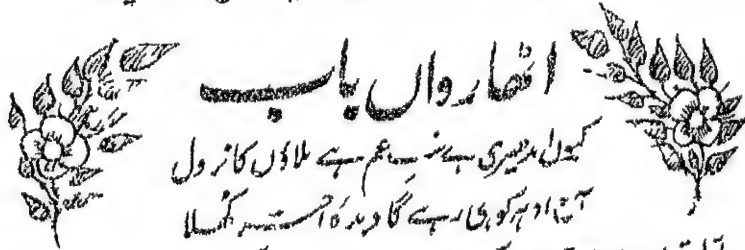 اٹھارواں باب
کیوں اندھیری ہے شبِ غم ہے بلاؤں کا نزول
آج ادہر کو ہی رہے گا دیدۂ اختر کھلا